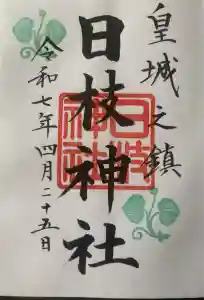 皇城之鎮
日枝神社
令和七年四月二十五日
日枝神社